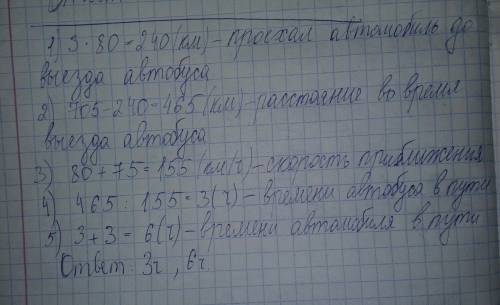 1) 3 · 80 = 240 (км) – проехал автомобиль до
выезда автобуса
2) 705 - 240 = 465 (км) – расстояние во время
выезда автобуса
3) 80 + 75 = 155 (км/ч) – скорость приближения
4) 465 : 155 = 3 (ч) – времени автобуса в пути
5) 3 + 3 = 6 (ч) – времени автомобиля в пути
Ответ: 3ч, 6ч